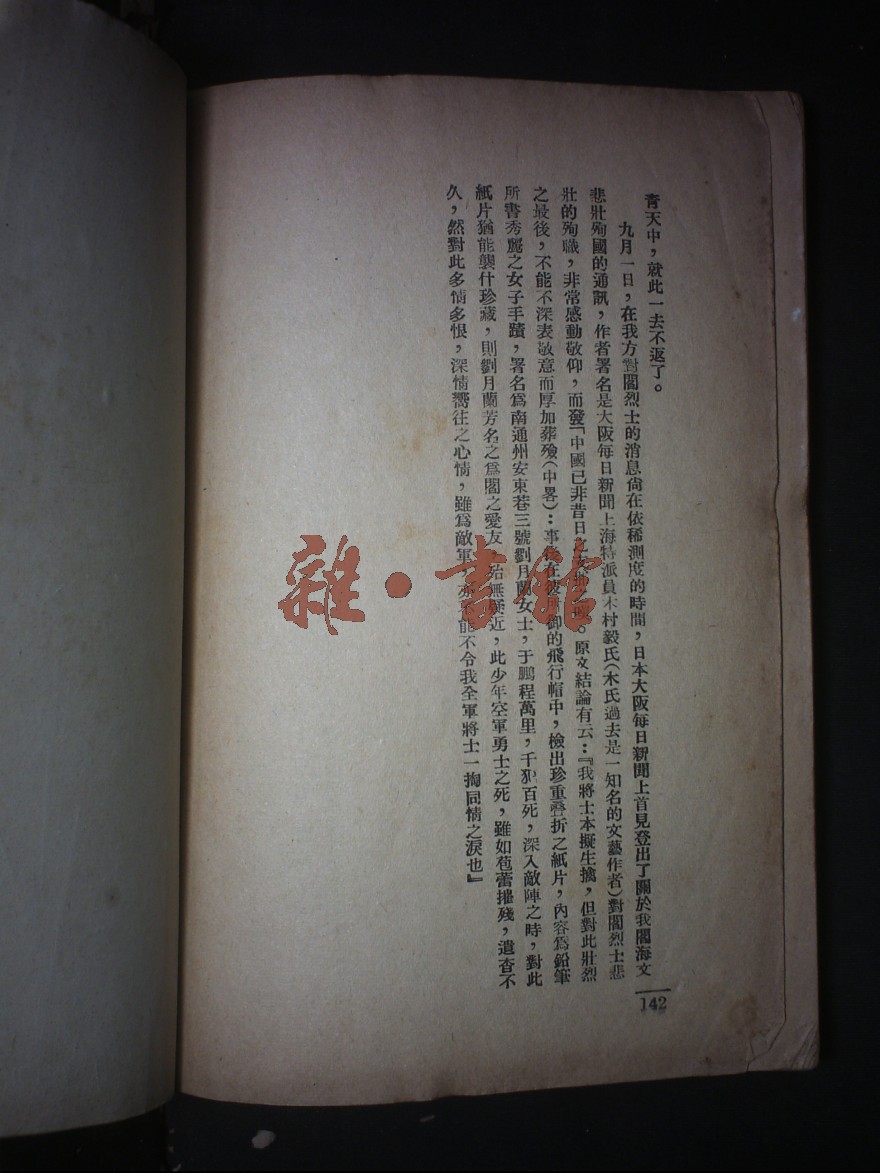 青天中，就此一去不返了。
九月一日，在我方對閻烈士的消息尙在依稀測度的時間，日本大阪每日新聞上首見登出了關於我閻海文
悲壯殉國的通訊，作者署名是大阪每日新聞上海特派員木村毅氏（木氏過去是一知名的文藝作者）對閻烈士悲
壯的殉職，非常感動敬仰，而發「中國已非昔日之。原文結論有云：『我將士本擬生擒，但對此壯烈
之最後，不能不深表敬意而厚加葬殮（中畧）：事後在彼所御的飛行帽中，檢出珍重疊折之紙片，內容爲鉛筆
所書秀麗之女子手蹟，署名爲南通州安東巷三號劉月蘭女士，于鵬程萬里，千犯百死，深入敵陣之時，對此
紙片猶能襲什珍藏，則劉月蘭芳名之爲閻之愛友，殆無疑近，此少年空軍勇士之死，雖如苞蕾摧殘，遺香不
久，然對此多情多恨，深情嚮往之心情，雖爲敵軍，亦不能不令我全軍將士一掬同情之淚也』
142
雜·書館